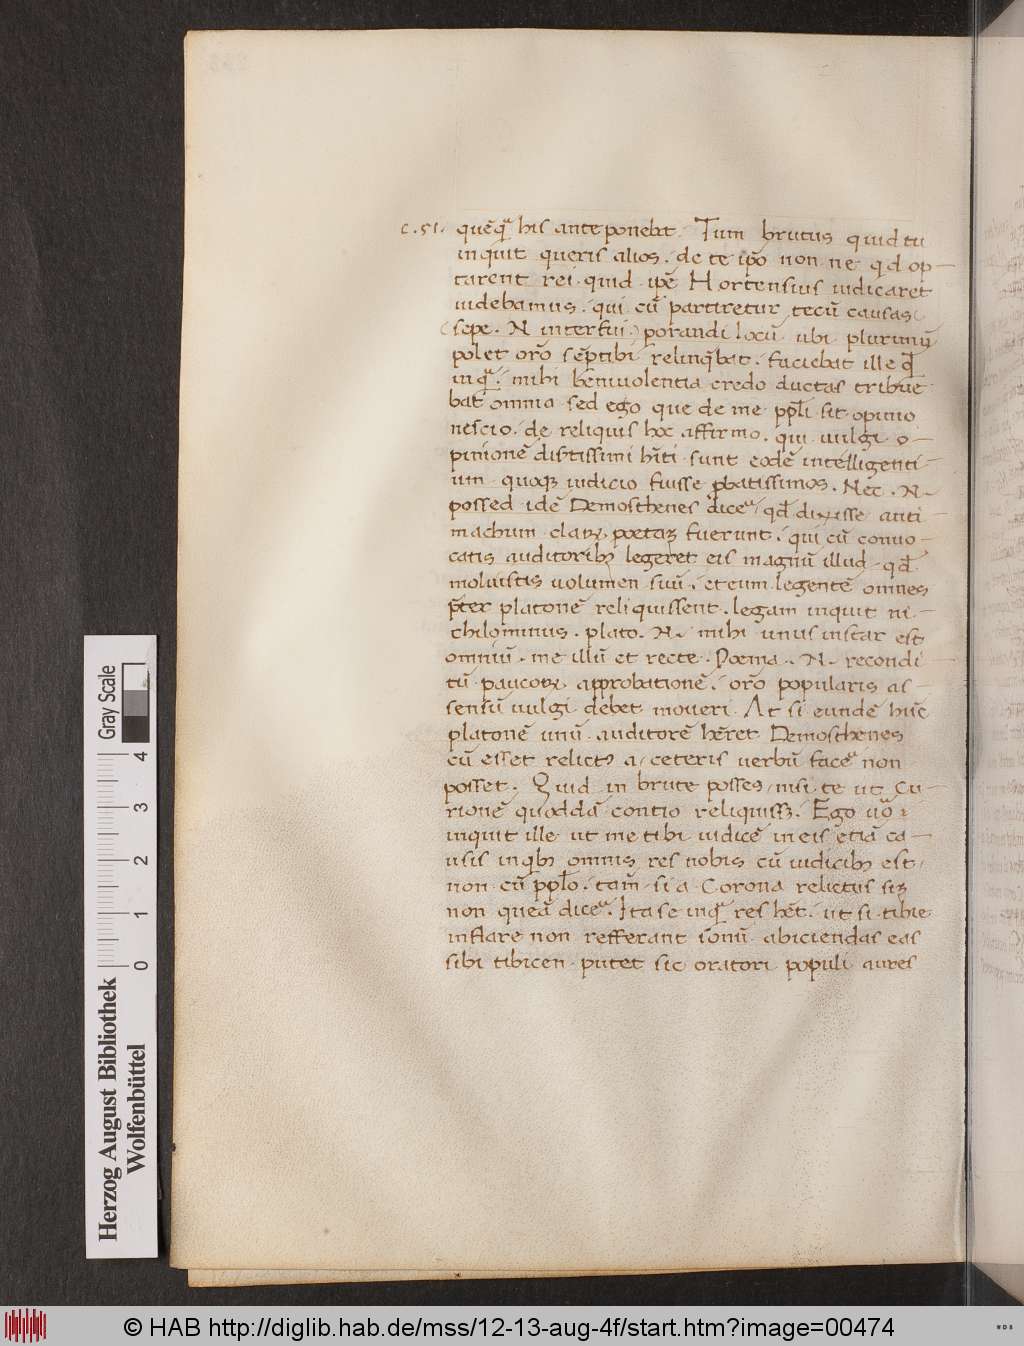 c.51. quēq̃ his anteponebt. Tum brutus quid tu
inquit queris alios. de te ip̄o non ne qd op-
tarent rei quid ip̄e Hortensius iudicaret
uidebamus. qui cū partiretur tecū causas
(sepe. N interfui) porandi locū ubi plurimū
polet orō sēp tibi relinq̄bat. faciebat ille q̄
inq̃. mihi beniuolentia credo ductas tribue
bat omnia sed ego que de me pp̄li sit opinio
nescio. de reliquis hoc affirmo. qui uulgi o-
pinionē disertissimi hīti sunt eodē intelligenti-
um quoqȝ iudicio fuisse p̱batissimos. Nec. N.
possed idē Demosthenes dice͛ qd̄ dixisse anti
machum claꝝ poetaȝ fuerunt. qui cū conuo-
catis auditoribȝ legeret eis magnū illud qd̄
moluistis uolumen suū. et eum legentē omnes
p̄ter platonē reliquissent. legam inquit ni-
chilominus. plato. N. mihi unus instar est
omniū. me illū et recte. Poema. N. recondi
tū paucoꝝ approbationē. orō popularis as-
sensū uulgi debet moueri. At si eundē hūc
platonē unū auditorē hēret Demosthenes
cū esset relictꝰ a ceteris uerbū face͛ non
posset. Quid in brute posses nisi te ut Cu-
rionē quoddā contio reliquissȝ. Ego uō
inquit ille ut me tibi iudicē in eis etiā ca-
usis inqbȝ omnis res nobis cū iudicibȝ est
non cū pp̄lo. tam̄ si a Corona relictus siȝ
non queā dice͛. Ita se inq̃ res hēt. ut si tibie
inflare non refferant sonū abiciendas eas
sibi tibicen putet sic oratori populi aures
Herzog August Bibliothek
Wolfenbüttel
Gray Scale
0 1 2 3 4
© HAB http://diglib.hab.de/mss/12-13-aug-4f/start.htm?image=00474